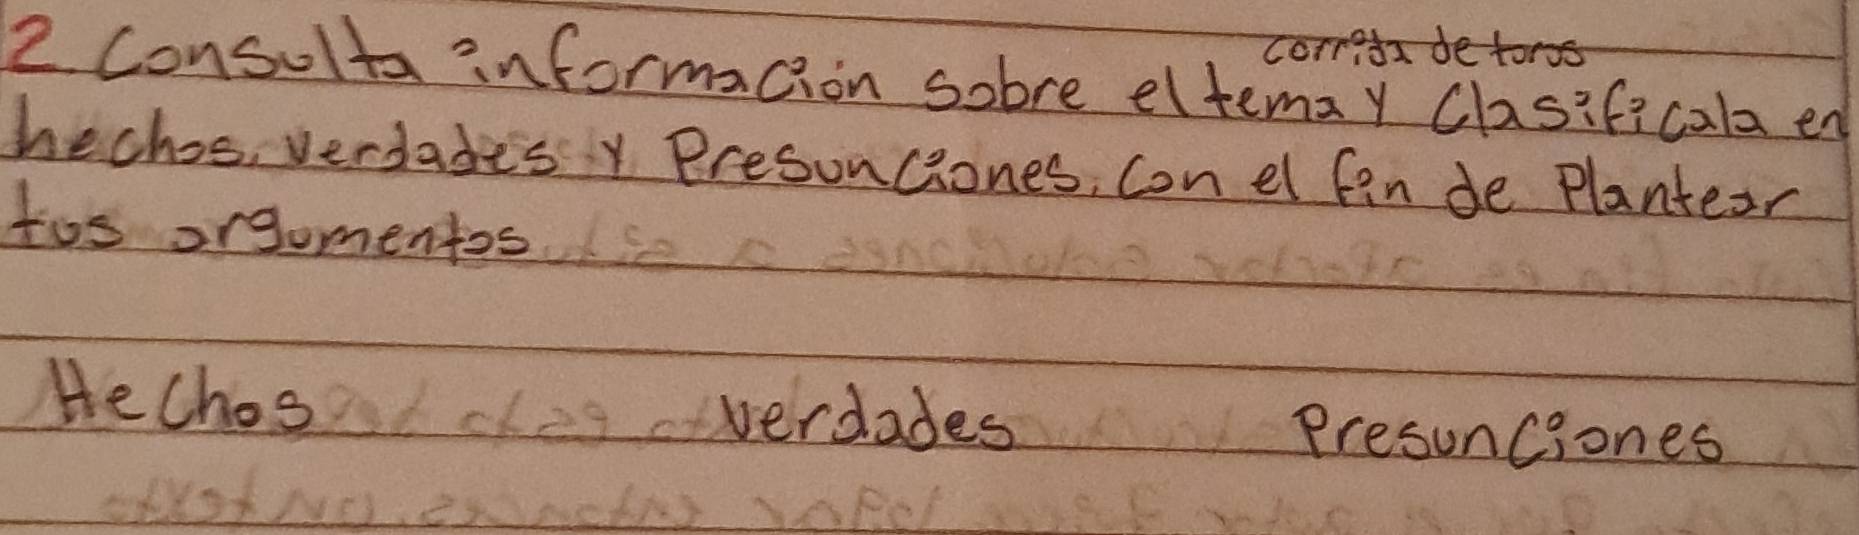 corrida de toros
2 Consulta información sobre el tema y Clasificala en
hechos, verdades y Presunciones, Con el fin de Plantear
tus argumentos
Hechos verdades Presunciones